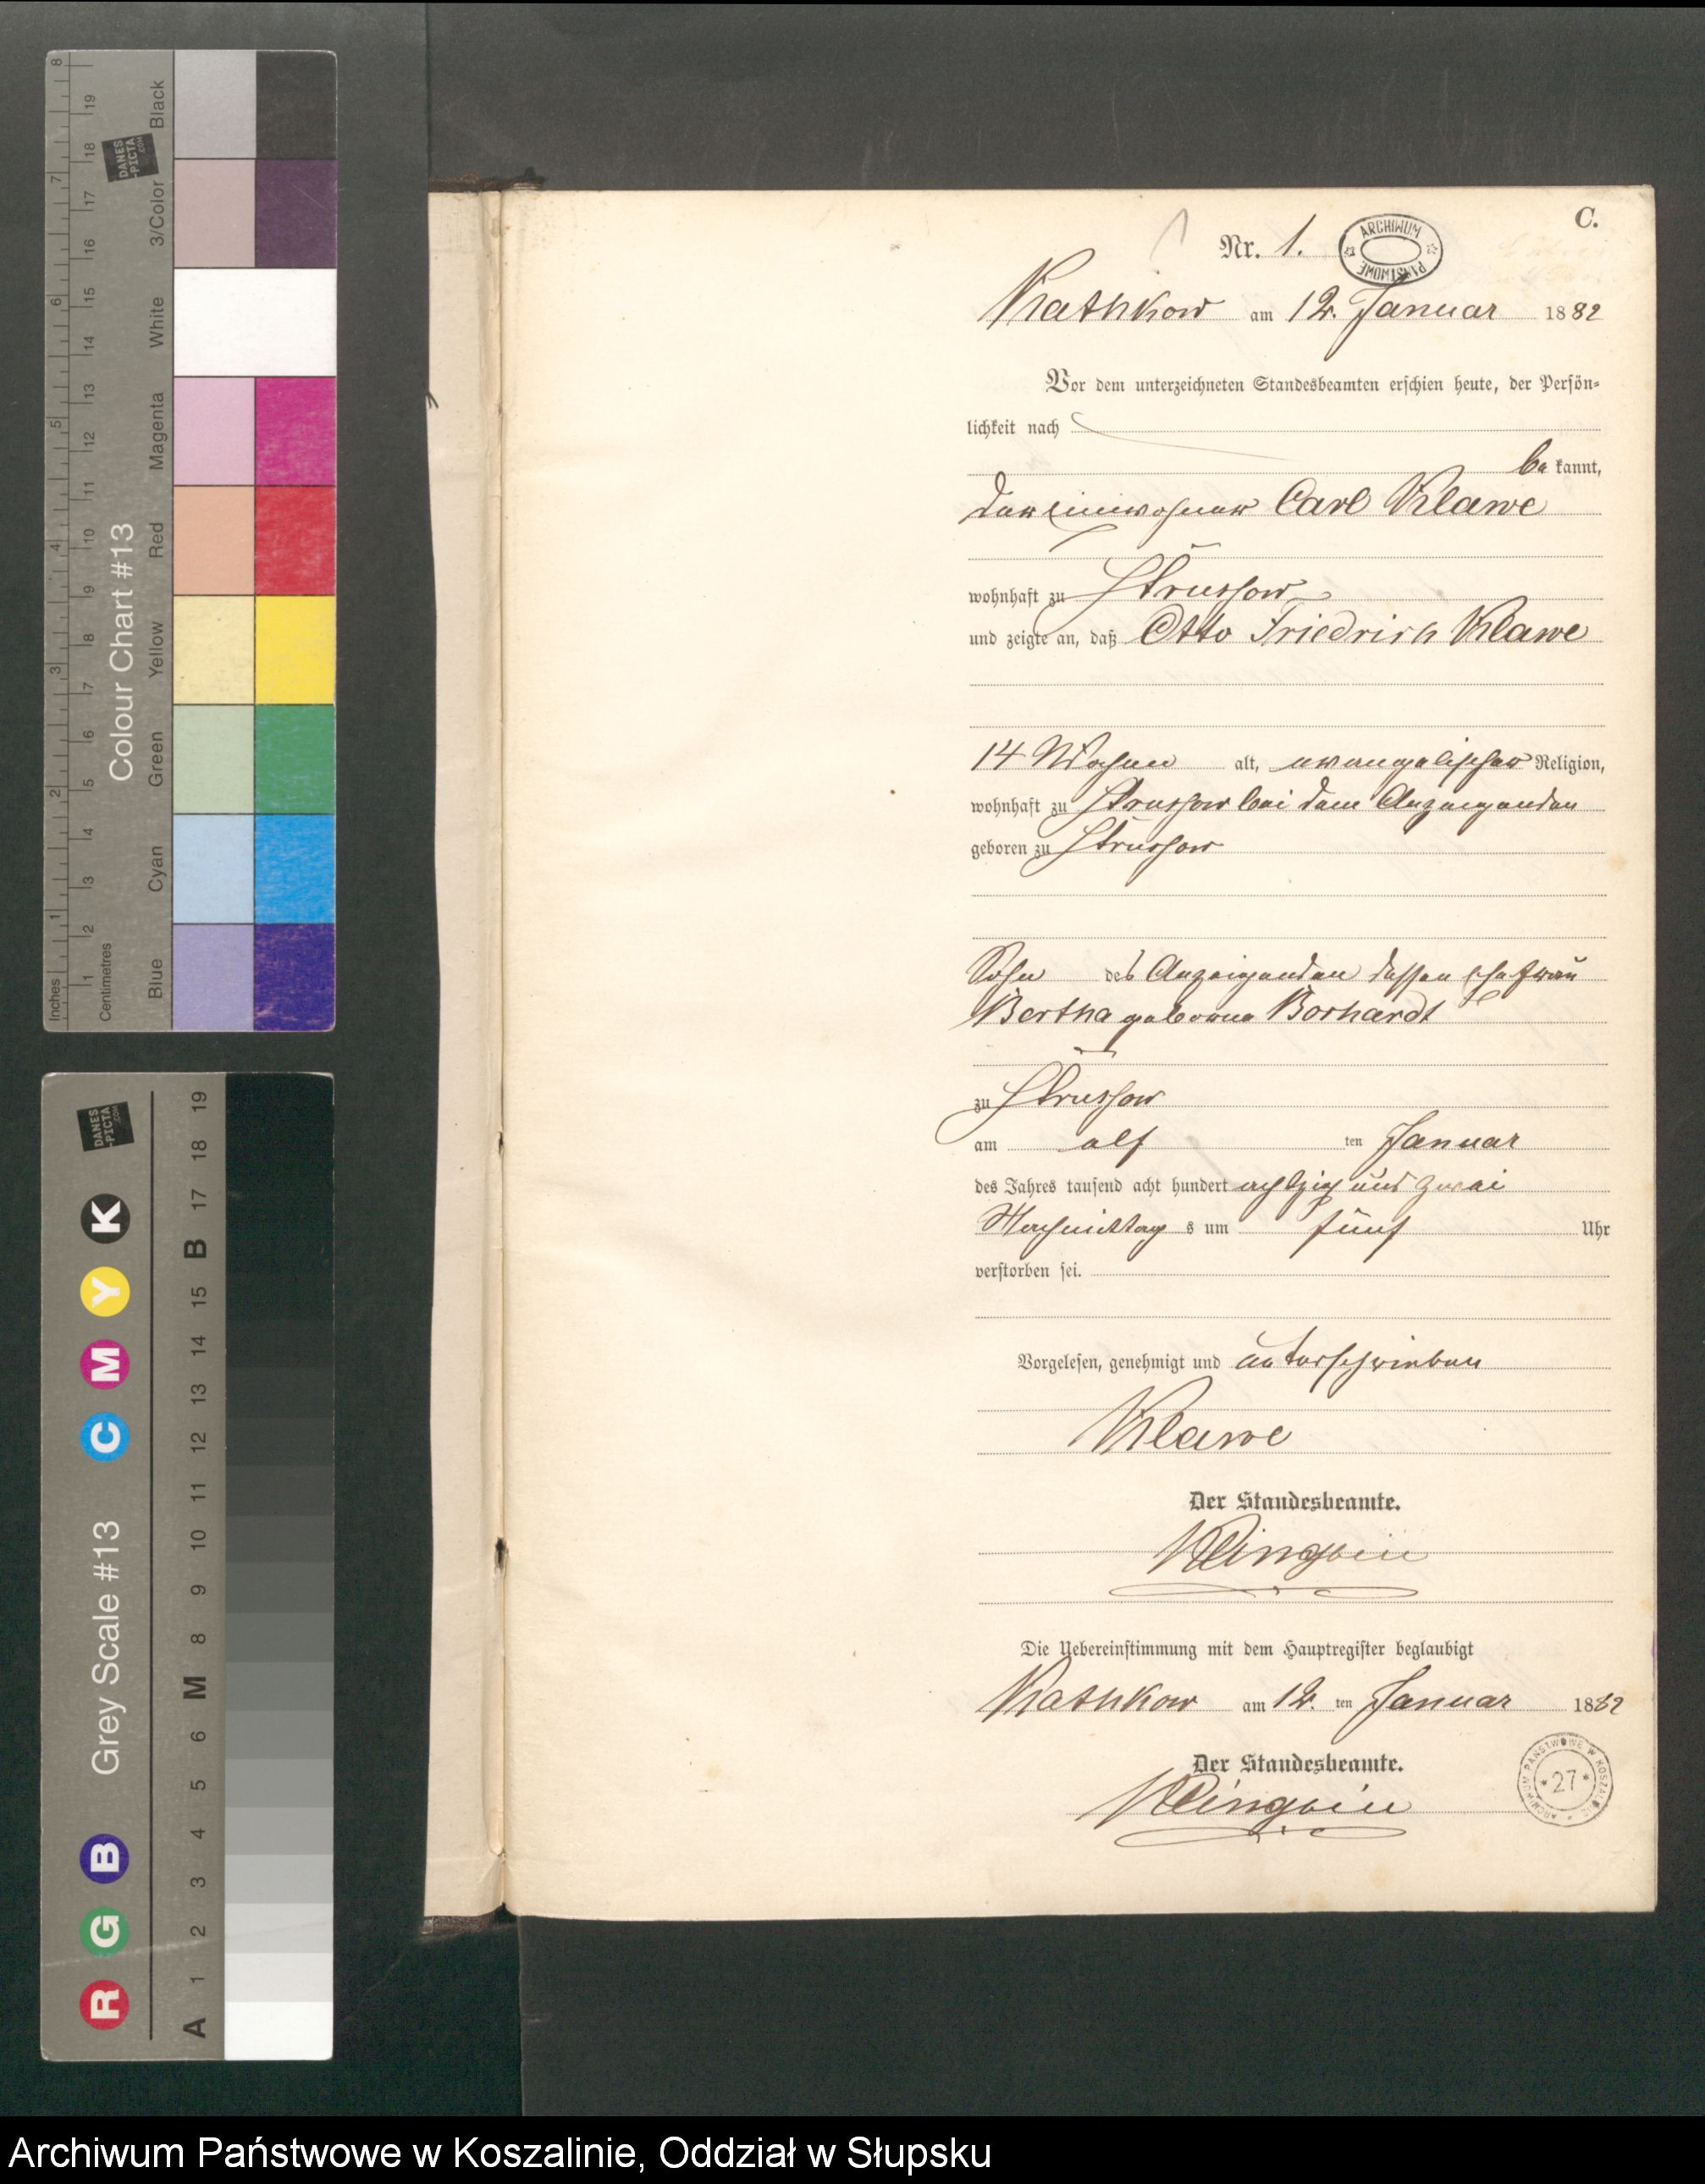 C.
Nr. 1.
ARCHIWUM PAŃSTWOWE
Kathkow am 12. Januar 1882
Vor dem unterzeichneten Standesbeamten erschien heute, der Persön-
lichkeit nach
be kannt,
der Einwohner Carl Klawe
wohnhaft zu Strussow
und zeigte an, daß Otto Friedrich Klawe
14 Wochen alt, evangelischer Religion,
wohnhaft zu Strussow bei dem Anzeigenden
geboren zu Strussow
Sohn des Anzeigenden dessen Ehefrau
Bertha geborne Borhardt
zu Strussow
am elf ten Januar
des Jahres tausend acht hundert achtzig und zwei
Nachmittag s um fünf Uhr
verstorben sei.
Vorgelesen, genehmigt und unterschrieben
Klawe
Der Standesbeamte.
Die Uebereinstimmung mit dem Hauptregister beglaubigt
Kathkow am 12. ten Januar 1882
Der Standesbeamte.
ARCHIWUM PAŃSTWOWE W KOSZALINIE
* 27 *
Inches
1 2 3 4 5 6 7 8
Centimetres
1 2 3 4 5 6 7 8 9 10 11 12 13 14 15 16 17 18 19
Colour Chart #13
DANES
-PICTA
.COM
Blue Cyan Green Yellow Red Magenta White 3/Color Black
Grey Scale #13
DANES
-PICTA
.COM
R G B C M Y K
A 1 2 3 4 5 6 M 8 9 10 11 12 13 14 15 B 17 18 19
Archiwum Państwowe w Koszalinie, Oddział w Słupsku